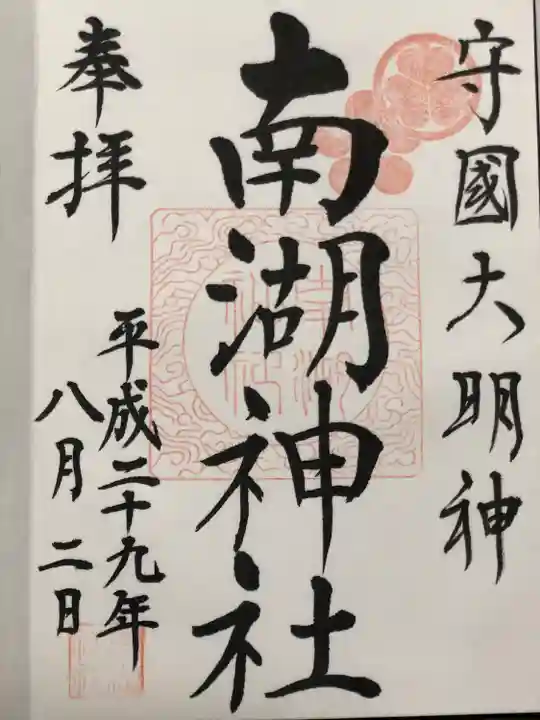 守國大明神
南湖神社
奉拝
平成二十九年
八月二日